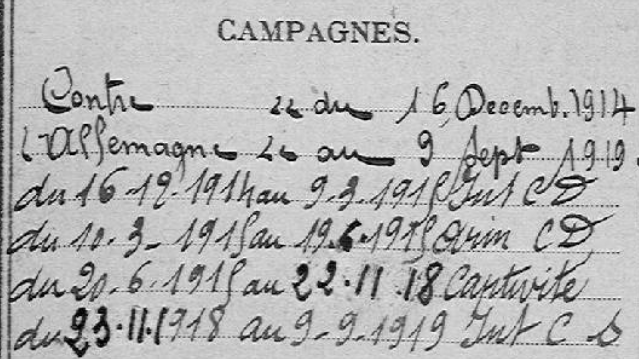 CAMPAGNES.
Contre le du 16 Decemb. 1914
l'Allemagne le au 9 Sept 1919.
du 16-12-1914 au 9-3-1915 Int C D
du 10-3-1915 au 19.6.1915 Arm C D
du 20-6-1915 au 22.11.18 Captivite
du 23.11.1918 au 9-9-1919 Int C S